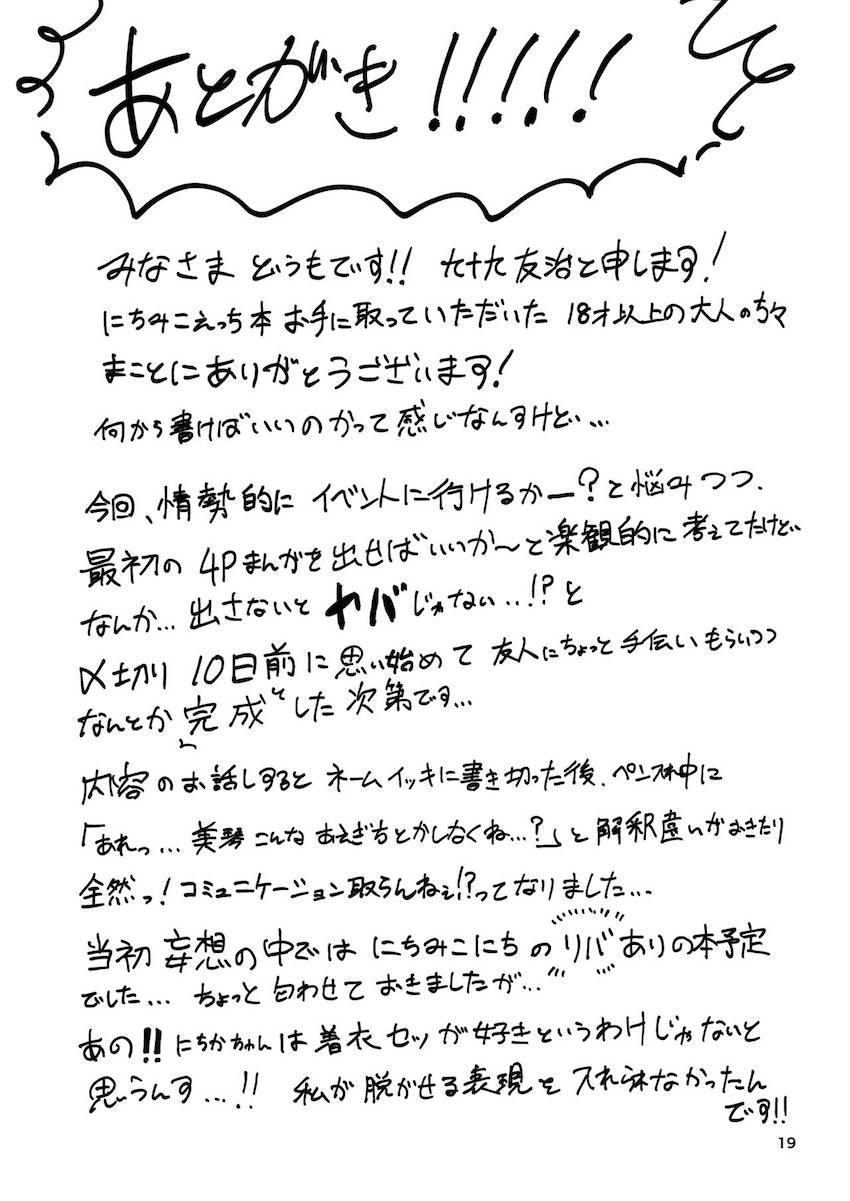 あとがき!!!!!
みなさま どうもです!! 九十九 友治と申します!
にちみこえっち本 お手に取っていただいた 18才以上の大人の方々
まことにありがとうございます!
何から書けばいいのかって感じなんすけど…
今回、情勢的に イベントに行けるかー?と悩みつつ、
最初の 4Pまんがを出せばいいか〜と楽観的に考えてたけど…
なんか… 出さないと ヤバじゃない…!?と
〆切り 10日前に思い始めて 友人にちょっと手伝いもらいつつ
なんとか 完成 とした次第です…
内容のお話しすると ネームイッキに書き切った後、ペン入れ中に
「あれっ… 美琴こんな あえぎ方とかしなくね…?」と解釈違いがおきたり
全然っ! コミュニケーション取らんねぇ!?ってなりました…
当初 妄想の中では にちみこにちの リバ ありの本予定
でした… ちょっと 匂わせて おきましたが…
あの!! にちかちゃんは 着衣セッが好きというわけじゃないと
思うんす…!! 私が 脱がせる表現を 入れられなかったん
です!!
19